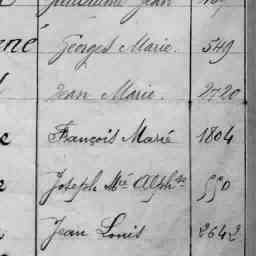 Guillaume Jean
né Georges Marie. 549
Jean Marie. 2720
François Marie 1804
Joseph Mie Alphse 550
Jean Louis 2642